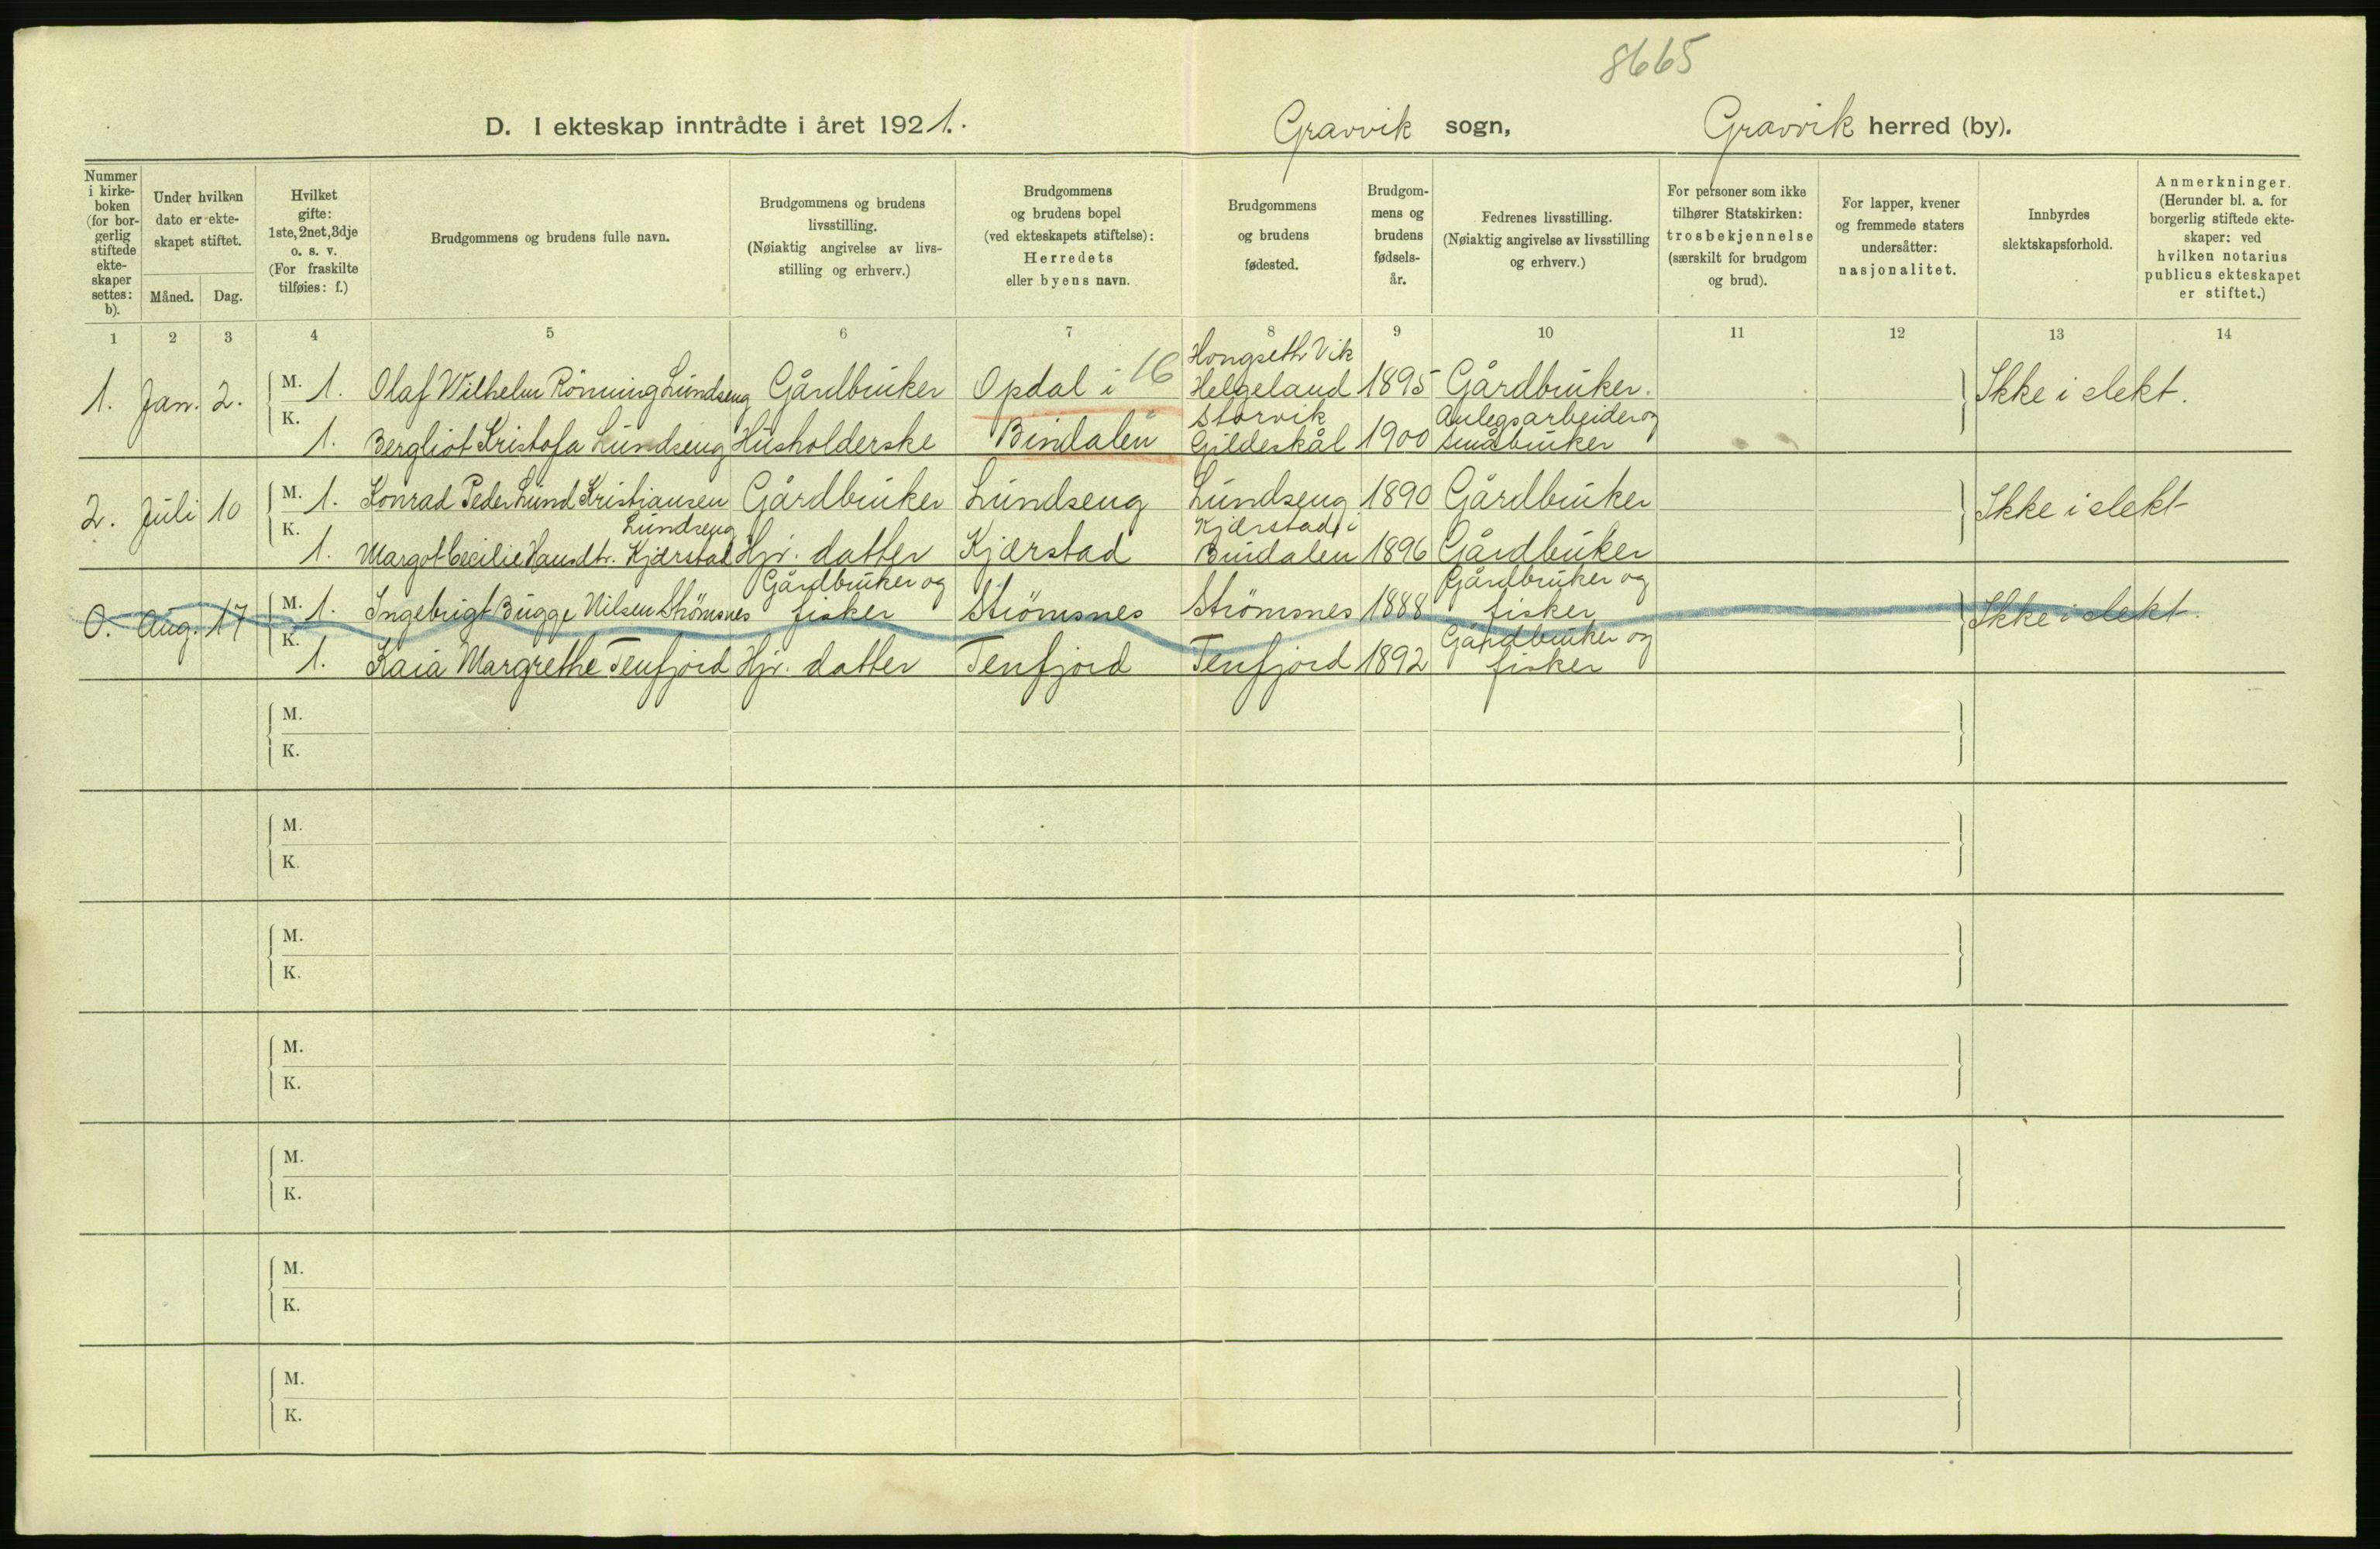 8665
D. I ekteskap inntrådte i året 1921. Gravvik sogn, Gravvik herred (by).
Nummer i kirke-boken (for bor-gerlig stiftede ekte-skaper settes: b).
Under hvilken dato er ekte-skapet stiftet.
Måned. Dag.
Hvilket gifte: 1ste, 2net, 3dje o. s. v. (For fraskilte tilføies: f.)
Brudgommens og brudens fulle navn.
Brudgommens og brudens livsstilling. (Nøiaktig angivelse av livs-stilling og erhverv.)
Brudgommens og brudens bopel (ved ekteskapets stiftelse): Herredets eller byens navn.
Brudgommens og brudens fødested.
Brudgom-mens og brudens fødsels-år.
Fedrenes livsstilling. (Nøiaktig angivelse av livsstilling og erhverv.)
For personer som ikke tilhører Statskirken: trosbekjennelse (særskilt for brudgom og brud).
For lapper, kvener og fremmede staters undersåtter: nasjonalitet.
Innbyrdes slektskapsforhold.
Anmerkninger. (Herunder bl. a. for borgerlig stiftede ekte-skaper: ved hvilken notarius publicus ekteskapet er stiftet.)
1 2 3 4 5 6 7 8 9 10 11 12 13 14
1. Jan. 2. M. 1. Olaf Wilhelm Rönning Lundseng Gårdbruker Opdal i 16 Hongseth Vik Helgeland 1895 Gårdbruker. Ikke i slekt.
K. 1. Bergliot Kristofa Lundseng Husholderske Bindalen Storvik Gildeskål 1900 Anlegsarbeider og småbruker
2. Juli 10 M. 1. Konrad Peder Lund Kristiansen Lundseng Gårdbruker Lundseng Lundseng 1890 Gårdbruker Ikke i slekt
K. 1. Margot Cecilie Hansdtr. Kjærstad Hjv. datter Kjærstad Kjærstad i Bindalen 1896 Gårdbruker
0. Aug. 17 M. 1. Ingebrigt Bugge Nilsen Strömsnes Gårdbruker og fisker Strömsnes Strömsnes 1888 Gårdbruker og fisker Ikke i slekt.
K. 1. Kaia Margrethe Tenfjord Hjv. datter Tenfjord Tenfjord 1892 Gårdbruker og fisker
M.
K.
M.
K.
M.
K.
M.
K.
M.
K.
M.
K.
M.
K.